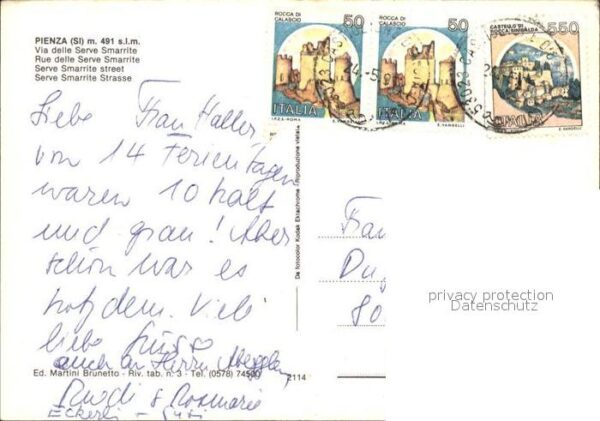 PIENZA (SI) m. 491 s.l.m.
Via delle Serve Smarrite
Rue delle Serve Smarrite
Serve Smarrite street
Serve Smarrite Strasse
ROCCA DI
CALASCIO
50
ITALIA
I.P.Z.S.-ROMA
E. VANGELLI
ROCCA DI
CALASCIO
50
ITALIA
I.P.Z.S.-ROMA
E. VANGELLI
CASTELLO DI
ROCCA SINIBALDA
550
ITALIA
E. VANGELLI
Liebe Frau Haller,
von 14 Ferientagen
waren 10 kalt
und grau! Aber
schön war es
trotzdem. Viele
liebe Grüsse
auch an Herrn
Ruedi & Rosmarie
Da fotocolor Kodak Ektachrome Riproduzione vietata
Frau
80
privacy protection
Datenschutz
Ed. Martini Brunetto - Riv. tab. n. 3 - Tel. (0578) 74500
2114